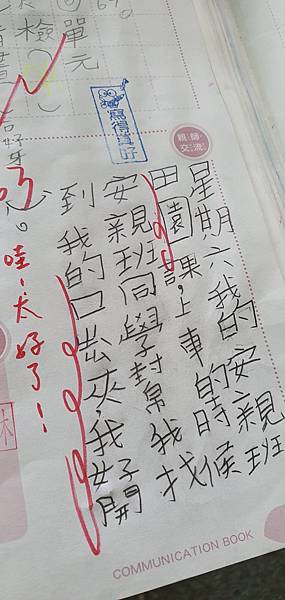 單元
檢
寫得真好
親師交流
星期六我的安親班
田園課。上車的時候
安親班同學幫我找
到我的口出夾,我好開
心。
哇!太好了!
COMMUNICATION BOOK